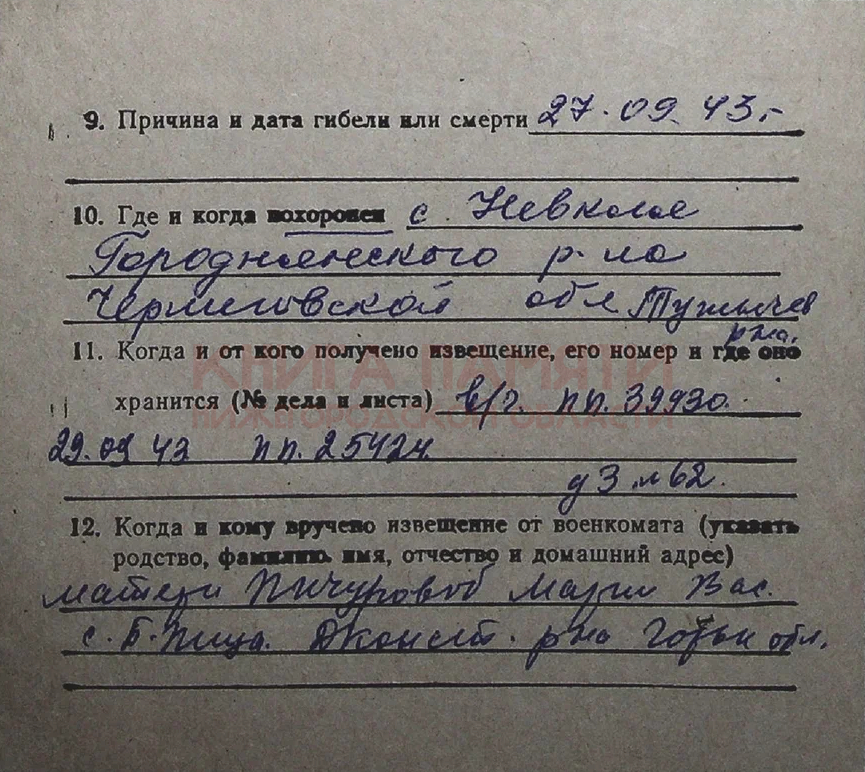 9. Причина и дата гибели или смерти 27.09.43г
10. Где и когда похоронен с. Невклое
Городнянского р-на
Черниговской обл
р-на.
11. Когда и от кого получено извещение, его номер и где оно
КНИГА ПАМЯТИ
хранится (№ дела и листа) в/г. пп. 39930.
НИЖЕГОРОДСКОЙ ОБЛАСТИ
29.09 43 пп. 25424
д 3 л 62.
12. Когда и кому вручено извещение от военкомата (указать
родство, фамилию, имя, отчество и домашний адрес)
матери Пичуровой Марии Вас.
с. Б. Пица. Дконст. р-на Горьк обл.